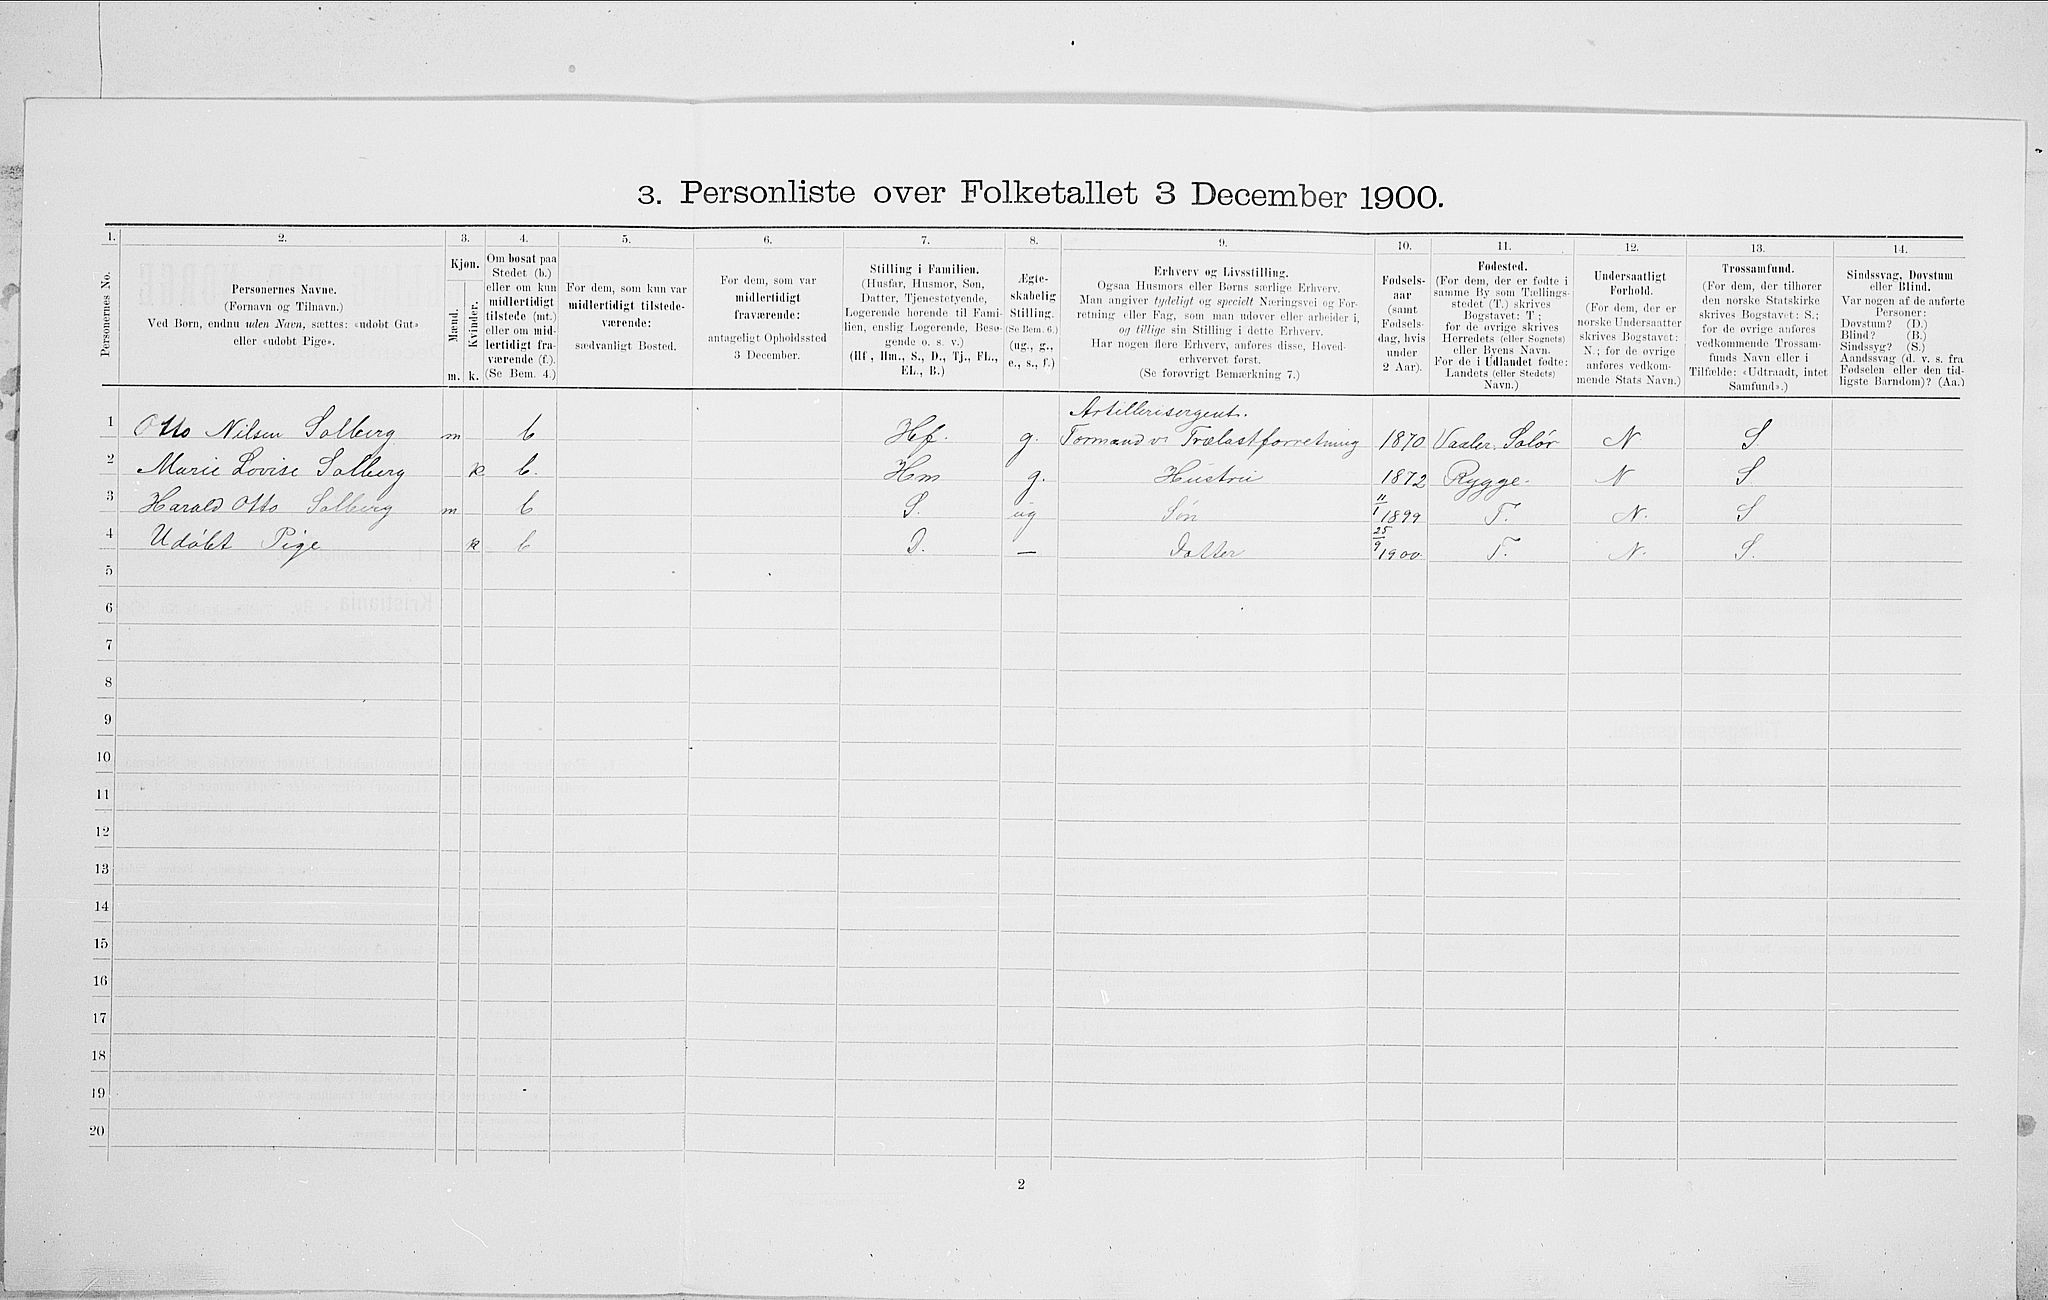 3. Personliste over Folketallet 3 December 1900.
1. 2. 3. 4. 5. 6. 7. 8. 9. 10. 11. 12. 13. 14.
Personernes No.
Personernes Navne.
(Fornavn og Tilnavn.)
Ved Børn, endnu uden Navn, sættes: «udøbt Gut»
eller «udøbt Pige».
Kjøn.
Mænd.
Kvinder.
m. k.
Om bosat paa
Stedet (b.)
eller om kun
midlertidigt
tilstede (mt.)
eller om mid-
lertidigt fra-
værende (f.).
(Se Bem. 4.)
For dem, som kun var
midlertidigt tilstede-
værende:
sædvanligt Bosted.
For dem, som var
midlertidigt
fraværende:
antageligt Opholdssted
3 December.
Stilling i Familien.
(Husfar, Husmor, Søn,
Datter, Tjenestetyende,
Logerende hørende til Fami-
lien, enslig Logerende, Besø-
gende o. s. v.)
(Hf., Hm., S., D., Tj., FL.,
EL., B.)
Ægte-
skabelig
Stilling.
(Se Bem. 6.)
(ug., g.,
e., s., f.)
Erhverv og Livsstilling.
Ogsaa Husmors eller Børns særlige Erhverv.
Man angiver tydeligt og specielt Næringsvei og For-
retning eller Fag, som man udøver eller arbeider i,
og tillige sin Stilling i dette Erhverv.
Har nogen flere Erhverv, anføres disse, Hoved-
erhvervet først.
(Se forøvrigt Bemærkning 7.)
Fødsels-
aar
(samt
Fødsels-
dag, hvis
under
2 Aar).
Fødested.
(For dem, der er fødte i
samme By som Tællings-
stedet (T.) skrives
Bogstavet: T;
for de øvrige skrives
Herredets (eller Sognets)
eller Byens Navn.
For de i Udlandet fødte:
Landets (eller Stedets)
Navn.)
Undersaatligt
Forhold.
(For dem, der er
norske Undersaatter
skrives Bogstavet:
N.; for de øvrige
anføres vedkom-
mende Stats Navn.)
Trossamfund.
(For dem, der tilhører
den norske Statskirke
skrives Bogstavet: S.;
for de øvrige anføres
vedkommende Trossam-
funds Navn eller i
Tilfælde: «Udtraadt, intet
Samfund».)
Sindssvag, Døvstum
eller Blind.
Var nogen af de anførte
Personer:
Døvstum? (D.)
Blind? (B.)
Sindssyg? (S.)
Aandssvag (d. v. s. fra
Fødselen eller den tid-
ligste Barndom)? (Aa.)
Artillerisergent.
1 Otto Nilsen Solberg m b Hf. g. Formand v. Trælastforretning 1870 Vaaler. Solør N S
2 Marie Lovise Solberg k b. Hm g. Hustru 1872 Rygge. N S.
3 Harald Otto Solberg m b S. ug Søn 11/1 1899 T. N. S
4 Udøbt Pige k b D. — Datter 25/9 1900 T. N. S.
5
6
7
8
9
10
11
12
13
14
15
16
17
18
19
20
2